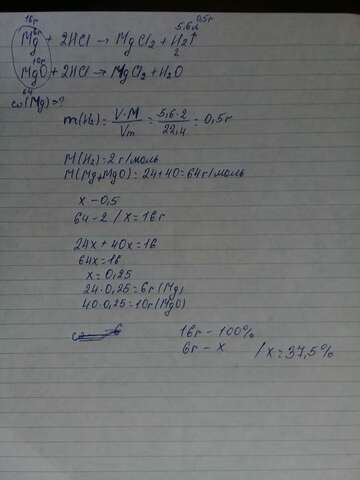 16г
6г 5,6л 0,5г
Mg + 2HCl → MgCl₂ + H₂↑
2
10г
MgO + 2HCl → MgCl₂ + H₂O
64
ω(Mg) = ?
m(H₂) = V·M/Vm = 5,6·2/22,4 = 0,5г
M(H₂) = 2 г/моль
M(Mg,MgO) = 24+40 = 64г/моль
x – 0,5
64 – 2 / x = 16г
24x + 40x = 16
64x = 16
x = 0,25
24·0,25 = 6г (Mg)
40·0,25 = 10г (MgO)
16г – 100%
6г – x / x = 37,5%